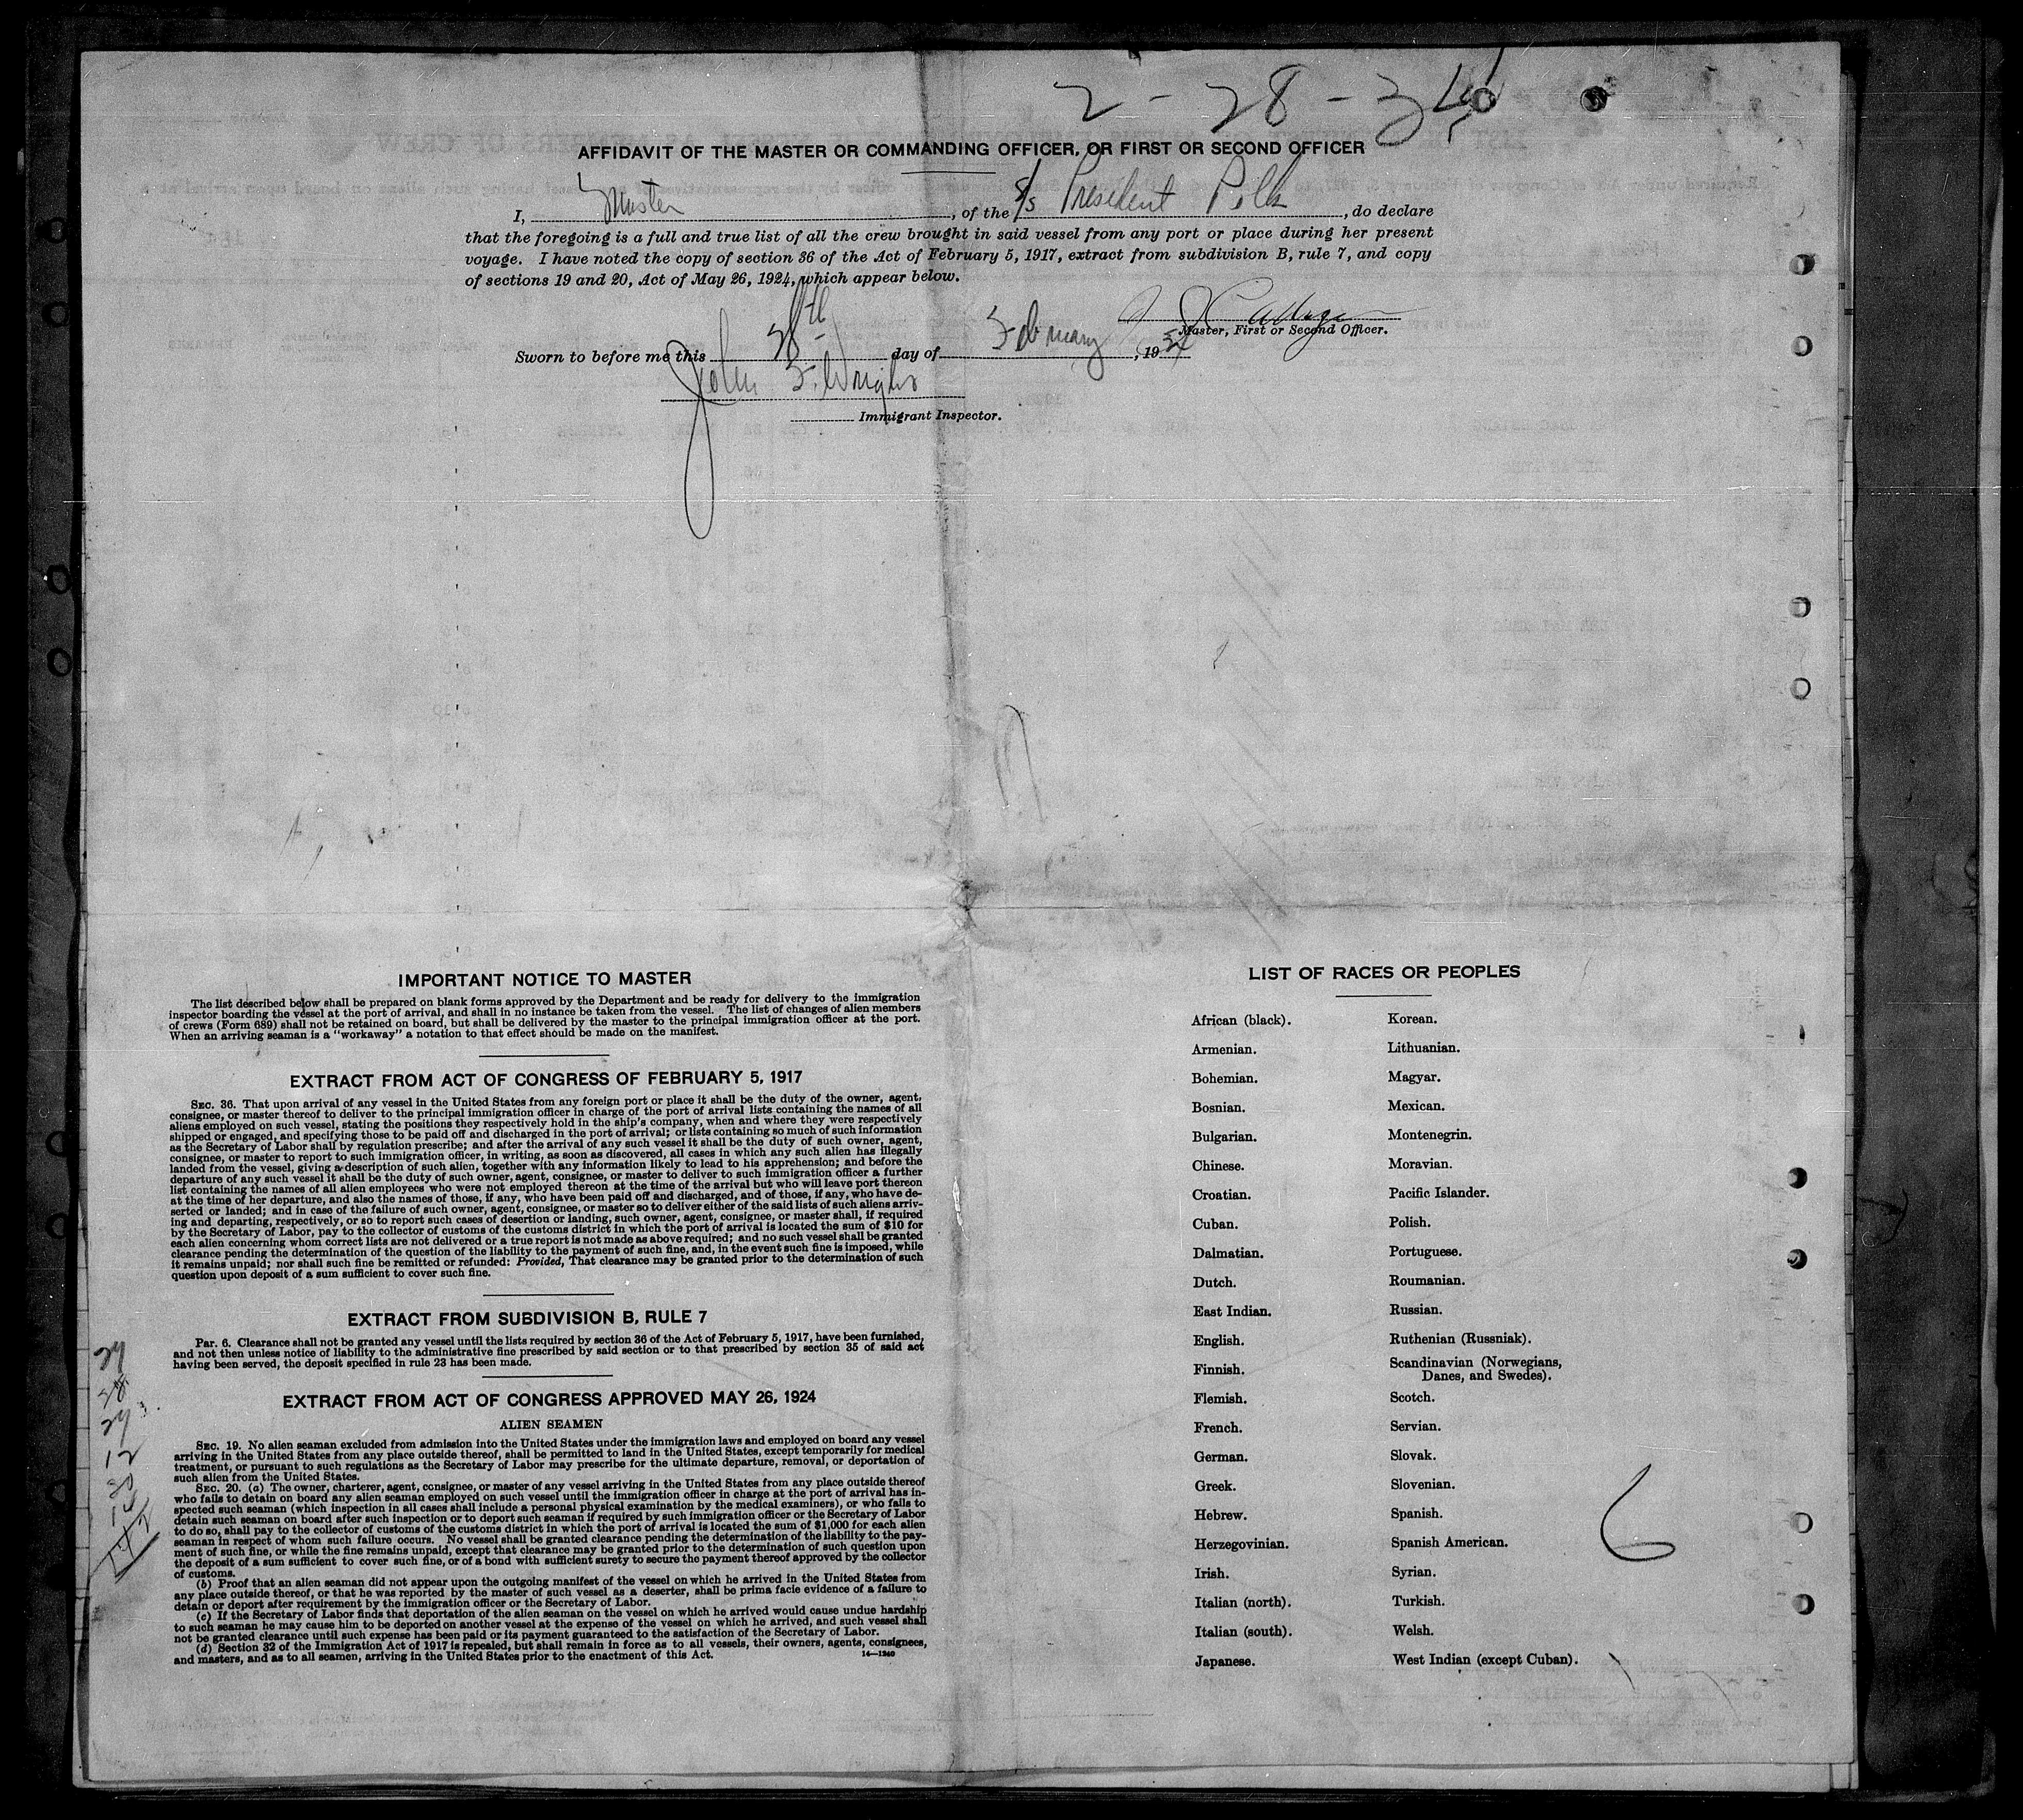 2-28-34
AFFIDAVIT OF THE MASTER OR COMMANDING OFFICER, OR FIRST OR SECOND OFFICER
I, Master, of the S/s President Polk, do declare
that the foregoing is a full and true list of all the crew brought in said vessel from any port or place during her present
voyage. I have noted the copy of section 36 of the Act of February 5, 1917, extract from subdivision B, rule 7, and copy
of sections 19 and 20, Act of May 26, 1924, which appear below.
Master, First or Second Officer.
Sworn to before me this 28th day of February, 19
John F. Wright
Immigrant Inspector.
IMPORTANT NOTICE TO MASTER
The list described below shall be prepared on blank forms approved by the Department and be ready for delivery to the immigration
inspector boarding the vessel at the port of arrival, and shall in no instance be taken from the vessel. The list of changes of alien members
of crews (Form 689) shall not be retained on board, but shall be delivered by the master to the principal immigration officer at the port.
When an arriving seaman is a "workaway" a notation to that effect should be made on the manifest.
EXTRACT FROM ACT OF CONGRESS OF FEBRUARY 5, 1917
SEC. 36. That upon arrival of any vessel in the United States from any foreign port or place it shall be the duty of the owner, agent,
consignee, or master thereof to deliver to the principal immigration officer in charge of the port of arrival lists containing the names of all
aliens employed on such vessel, stating the positions they respectively hold in the ship's company, when and where they were respectively
shipped or engaged, and specifying those to be paid off and discharged in the port of arrival; or lists containing so much of such information
as the Secretary of Labor shall by regulation prescribe; and after the arrival of any such vessel it shall be the duty of such owner, agent,
consignee, or master to report to such immigration officer, in writing, as soon as discovered, all cases in which any such alien has illegally
landed from the vessel, giving a description of such alien, together with any information likely to lead to his apprehension; and before the
departure of any such vessel it shall be the duty of such owner, agent, consignee, or master to deliver to such immigration officer a further
list containing the names of all alien employees who were not employed thereon at the time of the arrival but who will leave port thereon
at the time of her departure, and also the names of those, if any, who have been paid off and discharged, and of those, if any, who have de-
serted or landed; and in case of the failure of such owner, agent, consignee, or master so to deliver either of the said lists of such aliens arriv-
ing and departing, respectively, or so to report such cases of desertion or landing, such owner, agent, consignee, or master shall, if required
by the Secretary of Labor, pay to the collector of customs of the customs district in which the port of arrival is located the sum of $10 for
each alien concerning whom correct lists are not delivered or a true report is not made as above required; and no such vessel shall be granted
clearance pending the determination of the question of the liability to the payment of such fine, and, in the event such fine is imposed, while
it remains unpaid; nor shall such fine be remitted or refunded: Provided, That clearance may be granted prior to the determination of such
question upon deposit of a sum sufficient to cover such fine.
EXTRACT FROM SUBDIVISION B, RULE 7
Par. 6. Clearance shall not be granted any vessel until the lists required by section 36 of the Act of February 5, 1917, have been furnished,
and not then unless notice of liability to the administrative fine prescribed by said section or to that prescribed by section 35 of said act
having been served, the deposit specified in rule 23 has been made.
EXTRACT FROM ACT OF CONGRESS APPROVED MAY 26, 1924
ALIEN SEAMEN
SEC. 19. No alien seaman excluded from admission into the United States under the immigration laws and employed on board any vessel
arriving in the United States from any place outside thereof, shall be permitted to land in the United States, except temporarily for medical
treatment, or pursuant to such regulations as the Secretary of Labor may prescribe for the ultimate departure, removal, or deportation of
such alien from the United States.
SEC. 20. (a) The owner, charterer, agent, consignee, or master of any vessel arriving in the United States from any place outside thereof
who fails to detain on board any alien seaman employed on such vessel until the immigration officer in charge at the port of arrival has in-
spected such seaman (which inspection in all cases shall include a personal physical examination by the medical examiners), or who fails to
detain such seaman on board after such inspection or to deport such seaman if required by such immigration officer or the Secretary of Labor
to do so, shall pay to the collector of customs of the customs district in which the port of arrival is located the sum of $1,000 for each alien
seaman in respect of whom such failure occurs. No vessel shall be granted clearance pending the determination of the liability to the pay-
ment of such fine, or while the fine remains unpaid, except that clearance may be granted prior to the determination of such question upon
the deposit of a sum sufficient to cover such fine, or of a bond with sufficient surety to secure the payment thereof approved by the collector
of customs.
(b) Proof that an alien seaman did not appear upon the outgoing manifest of the vessel on which he arrived in the United States from
any place outside thereof, or that he was reported by the master of such vessel as a deserter, shall be prima facie evidence of a failure to
detain or deport after requirement by the immigration officer or the Secretary of Labor.
(c) If the Secretary of Labor finds that deportation of the alien seaman on the vessel on which he arrived would cause undue hardship
to such seaman he may cause him to be deported on another vessel at the expense of the vessel on which he arrived, and such vessel shall
not be granted clearance until such expense has been paid or its payment guaranteed to the satisfaction of the Secretary of Labor.
(d) Section 32 of the Immigration Act of 1917 is repealed, but shall remain in force as to all vessels, their owners, agents, consignees,
and masters, and as to all seamen, arriving in the United States prior to the enactment of this Act.
14—1240
LIST OF RACES OR PEOPLES
African (black).
Armenian.
Bohemian.
Bosnian.
Bulgarian.
Chinese.
Croatian.
Cuban.
Dalmatian.
Dutch.
East Indian.
English.
Finnish.
Flemish.
French.
German.
Greek.
Hebrew.
Herzegovinian.
Irish.
Italian (north).
Italian (south).
Japanese.
Korean.
Lithuanian.
Magyar.
Mexican.
Montenegrin.
Moravian.
Pacific Islander.
Polish.
Portuguese.
Roumanian.
Russian.
Ruthenian (Russniak).
Scandinavian (Norwegians,
Danes, and Swedes).
Scotch.
Servian.
Slovak.
Slovenian.
Spanish.
Spanish American.
Syrian.
Turkish.
Welsh.
West Indian (except Cuban).
6